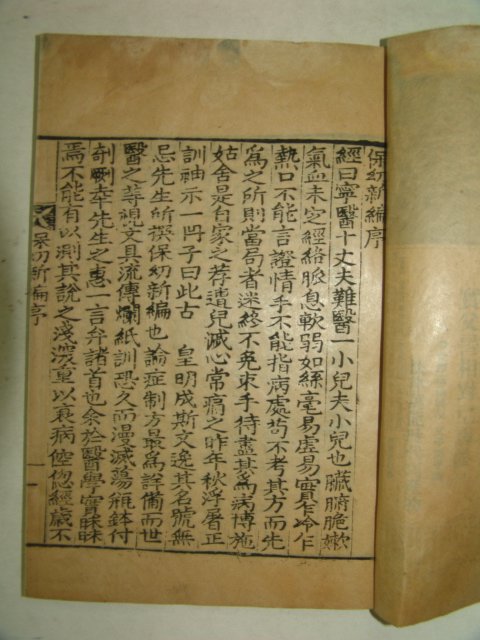 保幼新編序
經曰寧醫十丈夫難醫一小兒夫小兒也臟腑脆嫰
氣血未定經絡脈息軟弱如絲毫易虛易實乍冷乍
熱口不能言證情手不能指病處苟不考其方而先
為之所則當局者迷終不免束手待盡其為病博施
姑舍是自家之荐遭兒㓕心常痛之昨年秋浮屠正
訓袖示一冊子曰此古 皇明成斯文逸其名號無
忌先生所撰保幼新編也論症制方最為詳備而世
醫之等視文具流傳爛紙訓恐久而漫滅蕩瓶鉢付
剞劂幸先生之惠一言弁諸首也余於醫學實昧昧
焉不能有以測其說之淺深重以衰病倥偬經歲不
保幼新編序